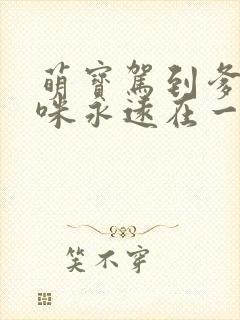 萌寶駕到爹
咪永遠在一
笑不穿